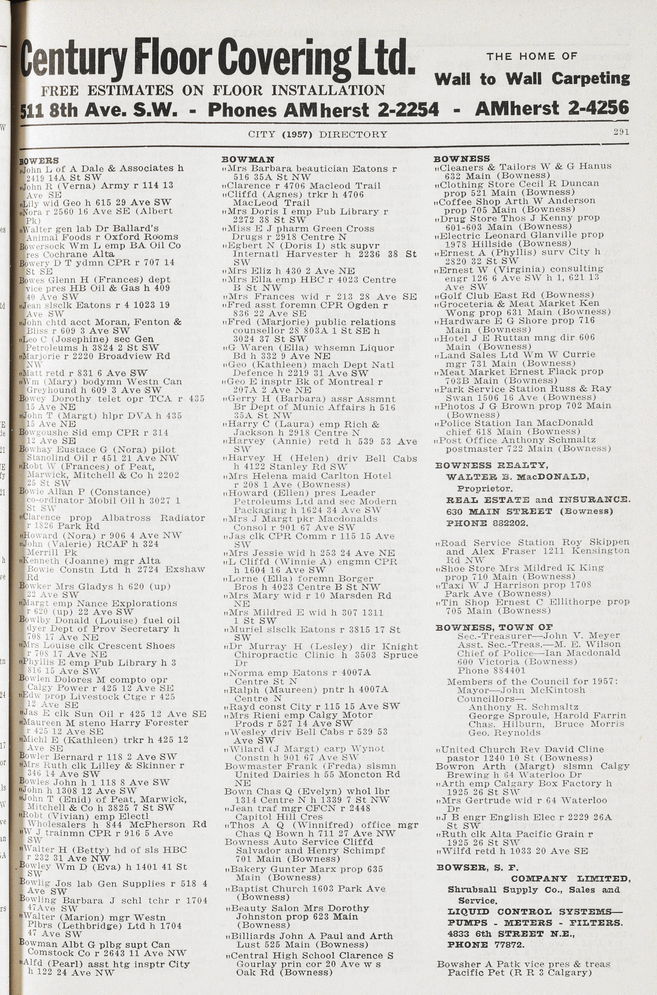 Century Floor Covering Ltd.
FREE ESTIMATES ON FLOOR INSTALLATION
THE HOME OF
Wall to Wall Carpeting
511 8th Ave. S.W. - Phones AMherst 2-2254 - AMherst 2-4256
CITY (1957) DIRECTORY
291
BOWERS
"John L of A Dale & Associates h
2419 14A St SW
"John R (Verna) Army r 114 13
Ave SE
"Lily wid Geo h 615 29 Ave SW
"Nora r 2560 16 Ave SE (Albert
Pk)
"Walter gen lab Dr Ballard's
Animal Foods r Oxford Rooms
Bowersock Wm L emp BA Oil Co
res Cochrane Alta
Bowery D T ydmn CPR r 707 14
St SE
Bowes Glenn H (Frances) dept
vice pres HB Oil & Gas h 409
40 Ave SW
"Jean slsclk Eatons r 4 1023 19
Ave SW
"John chtd acct Moran, Fenton &
Bliss r 609 3 Ave SW
"Leo C (Josephine) sec Gen
Petroleums h 3824 2 St SW
"Marjorie r 2220 Broadview Rd
NW
"Matt retd r 831 6 Ave SW
"Wm (Mary) bodymn Westn Can
Greyhound h 609 3 Ave SW
Bowey Dorothy telet opr TCA r 435
15 Ave NE
"John T (Margt) hlpr DVA h 435
15 Ave NE
Bowgoushe Sid emp CPR r 314
12 Ave SE
Bowhay Eustace G (Nora) pilot
Stanolind Oil r 451 21 Ave NW
"Robt W (Frances) of Peat,
Marwick, Mitchell & Co h 2202
25 St SW
Bowie Allan P (Constance)
co-ordinator Mobil Oil h 3027 1
St SW
"Clarence prop Albatross Radiator
r 1826 Park Rd
"Howard (Nora) r 906 4 Ave NW
"John (Valerie) RCAF h 324
Merrill Pk
"Kenneth (Joanne) mgr Alta
Bowie Constn Ltd h 2724 Exshaw
Rd
Bowker Mrs Gladys h 620 (up)
22 Ave SW
"Margt emp Nance Explorations
r 620 (up) 22 Ave SW
Bowlby Donald (Louise) fuel oil
dyer Dept of Prov Secretary h
708 17 Ave NE
"Mrs Louise clk Crescent Shoes
r 708 17 Ave NE
"Phyllis E emp Pub Library h 3
816 15 Ave SW
Bowlen Dolores M compto opr
Calgy Power r 425 12 Ave SE
"Edw prop Livestock Ctge r 425
12 Ave SE
"Jas E clk Sun Oil r 425 12 Ave SE
"Maureen M steno Harry Forester
r 425 12 Ave SE
"Michl E (Kathleen) trkr h 425 12
Ave SE
Bowler Bernard r 118 2 Ave SW
"Mrs Ruth clk Lilley & Skinner r
346 14 Ave SW
Bowles John h 1 118 8 Ave SW
"John h 1308 12 Ave SW
"John T (Enid) of Peat, Marwick,
Mitchell & Co h 3825 7 St SW
"Robt (Vivian) emp Electl
Wholesalers h 844 McPherson Rd
"W J trainmn CPR r 916 5 Ave
SW
"Walter H (Betty) hd of sls HBC
r 232 31 Ave NW
Bowley Wm D (Eva) h 1401 41 St
SW
Bowlig Jos lab Gen Supplies r 518 4
Ave SW
Bowling Barbara J schl tchr r 1704
47Ave SW
"Walter (Marion) mgr Westn
Plbrs (Lethbridge) Ltd h 1704
47 Ave SW
Bowman Albt G plbg supt Can
Comstock Co r 2643 11 Ave NW
"Alfd (Pearl) asst htg insptr City
h 122 24 Ave NW
BOWMAN
"Mrs Barbara beautician Eatons r
516 35A St NW
"Clarence r 4706 Macleod Trail
"Cliffd (Agnes) trkr h 4706
MacLeod Trail
"Mrs Doris I emp Pub Library r
2272 38 St SW
"Miss E J pharm Green Cross
Drugs r 2918 Centre N
"Egbert N (Doris I) stk supvr
Internatl Harvester h 2236 38 St
SW
"Mrs Eliz h 430 2 Ave NE
"Mrs Ella emp HBC r 4023 Centre
B St NW
"Mrs Frances wid r 213 28 Ave SE
"Fred asst foremn CPR Ogden r
836 22 Ave SE
"Fred (Marjorie) public relations
counsellor 28 803A 1 St SE h
3024 37 St SW
"G Waren (Ella) whsemn Liquor
Bd h 332 9 Ave NE
"Geo (Kathleen) mach Dept Natl
Defence h 2219 31 Ave SW
"Geo E insptr Bk of Montreal r
207A 2 Ave NE
"Gerry H (Barbara) assr Assmnt
Br Dept of Munic Affairs h 516
35A St NW
"Harry C (Laura) emp Rich &
Jackson h 2918 Centre N
"Harvey (Annie) retd h 539 53 Ave
SW
"Harvey H (Helen) driv Bell Cabs
h 4122 Stanley Rd SW
"Mrs Helena maid Carlton Hotel
r 208 1 Ave (Bowness)
"Howard (Ellen) pres Leader
Petroleums Ltd and sec Modern
Packaging h 1624 34 Ave SW
"Mrs J Margt pkr Macdonalds
Consol r 901 67 Ave SW
"Jas clk CPR Comm r 115 15 Ave
SW
"Mrs Jessie wid h 253 24 Ave NE
"L Cliffd (Winnie A) engmn CPR
h 1604 16 Ave SW
"Lorne (Ella) foremn Borger
Bros h 4023 Centre B St NW
"Mrs Mary wid r 10 Marsden Rd
NE
"Mrs Mildred E wid h 307 1311
1 St SW
"Muriel slsclk Eatons r 3815 17 St
SW
"Dr Murray H (Lesley) dir Knight
Chiropractic Clinic h 3503 Spruce
Dr
"Norma emp Eatons r 4007A
Centre St N
"Ralph (Maureen) pntr h 4007A
Centre N
"Rayd const City r 115 15 Ave SW
"Mrs Rieni emp Calgy Motor
Prods r 527 14 Ave SW
"Wesley driv Bell Cabs r 539 53
Ave SW
"Wilard (J Margt) carp Wynot
Constn h 901 67 Ave SW
Bowmaster Frank (Freda) slsmn
United Dairies h 55 Moncton Rd
NE
Bown Chas Q (Evelyn) whol lbr
1314 Centre N h 1339 7 St NW
"Jean traf mgr CFCN r 2448
Capitol Hill Cres
"Thos A Q (Winnifred) office mgr
Chas Q Bown h 711 27 Ave NW
Bowness Auto Service Cliffd
Salvador and Henry Schimpf
701 Main (Bowness)
"Bakery Gunter Marx prop 635
Main (Bowness)
"Baptist Church 1603 Park Ave
(Bowness)
"Beauty Salon Mrs Dorothy
Johnston prop 623 Main
(Bowness)
"Billiards John A Paul and Arth
Lust 525 Main (Bowness)
"Central High School Clarence S
Gourlay prin cor 20 Ave w s
Oak Rd (Bowness)
BOWNESS
"Cleaners & Tailors W & G Hanus
632 Main (Bowness)
"Clothing Store Cecil R Duncan
prop 521 Main (Bowness)
"Coffee Shop Arth W Anderson
prop 705 Main (Bowness)
"Drug Store Thos J Kenny prop
601-603 Main (Bowness)
"Electric Leonard Glanville prop
1978 Hillside (Bowness)
"Ernest A (Phyllis) surv City h
2820 32 St SW
"Ernest W (Virginia) consulting
engr 126 6 Ave SW h 1, 621 13
Ave SW
"Golf Club East Rd (Bowness)
"Groceteria & Meat Market Ken
Wong prop 631 Main (Bowness)
"Hardware E G Shore prop 716
Main (Bowness)
"Hotel J E Ruttan mng dir 606
Main (Bowness)
"Land Sales Ltd Wm W Currie
mgr 731 Main (Bowness)
"Meat Market Ernest Flack prop
703B Main (Bowness)
"Park Service Station Russ & Ray
Swan 1506 16 Ave (Bowness)
"Photos J G Brown prop 702 Main
(Bowness)
"Police Station Ian MacDonald
chief 618 Main (Bowness)
"Post Office Anthony Schmaltz
postmaster 722 Main (Bowness)
BOWNESS REALTY,
WALTER B. MacDONALD,
Proprietor.
REAL ESTATE and INSURANCE.
630 MAIN STREET (Bowness)
PHONE 882202.
"Road Service Station Roy Skippen
and Alex Fraser 1211 Kensington
Rd NW
"Shoe Store Mrs Mildred K King
prop 710 Main (Bowness)
"Taxi W J Harrison prop 1708
Park Ave (Bowness)
"Tin Shop Ernest C Ellithorpe prop
705 Main (Bowness)
BOWNESS, TOWN OF
Sec.-Treasurer—John V. Meyer
Asst. Sec.-Treas.—M. E. Wilson
Chief of Police—Ian Macdonald
600 Victoria (Bowness)
Phone 884401
Members of the Council for 1957:
Mayor—John McKintosh
Councillors—
Anthony R. Schmaltz
George Sproule, Harold Farrin
Chas. Hilburn, Bruce Morris
Geo. Reynolds
"United Church Rev David Cline
pastor 1240 10 St (Bowness)
Bowron Arth (Margt) slsmn Calgy
Brewing h 64 Waterloo Dr
"Arth emp Calgary Box Factory h
1925 26 St SW
"Mrs Gertrude wid r 64 Waterloo
Dr
"J B engr English Elec r 2229 26A
St SW
"Ruth clk Alta Pacific Grain r
1925 26 St SW
"Wilfd retd h 1033 20 Ave SE
BOWSER, S. F.
COMPANY LIMITED,
Shrubsall Supply Co., Sales and
Service.
LIQUID CONTROL SYSTEMS—
PUMPS - METERS - FILTERS.
4833 6th STREET N.E.,
PHONE 77872.
Bowsher A Patk vice pres & treas
Pacific Pet (R R 3 Calgary)